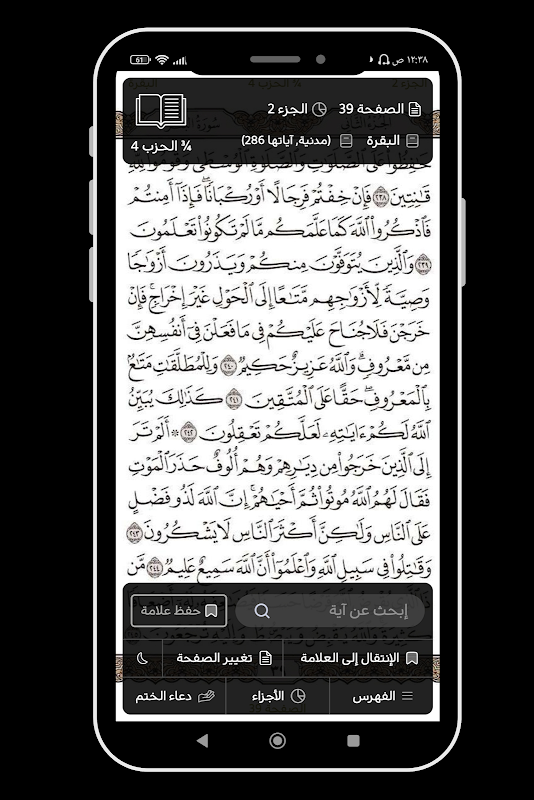 ١٢:٣٨ ص
61
الصفحة 39
الجزء 2
البقرة
(مدنية, آياتها 286)
¾ الحزب 4
حَٰفِظُوا۟ عَلَى ٱلصَّلَوَٰتِ وَٱلصَّلَوٰةِ ٱلْوُسْطَىٰ وَقُومُوا۟ لِلَّهِ
قَٰنِتِينَ ٢٣٨ فَإِنْ خِفْتُمْ فَرِجَالًا أَوْ رُكْبَانًا ۖ فَإِذَآ أَمِنتُمْ
فَٱذْكُرُوا۟ ٱللَّهَ كَمَا عَلَّمَكُم مَّا لَمْ تَكُونُوا۟ تَعْلَمُونَ
٢٣٩ وَٱلَّذِينَ يُتَوَفَّوْنَ مِنكُمْ وَيَذَرُونَ أَزْوَٰجًا
وَصِيَّةً لِّأَزْوَٰجِهِم مَّتَٰعًا إِلَى ٱلْحَوْلِ غَيْرَ إِخْرَاجٍ ۚ فَإِنْ
خَرَجْنَ فَلَا جُنَاحَ عَلَيْكُمْ فِى مَا فَعَلْنَ فِىٓ أَنفُسِهِنَّ
مِن مَّعْرُوفٍ ۗ وَٱللَّهُ عَزِيزٌ حَكِيمٌ ٢٤٠ وَلِلْمُطَلَّقَٰتِ مَتَٰعٌۢ
بِٱلْمَعْرُوفِ ۖ حَقًّا عَلَى ٱلْمُتَّقِينَ ٢٤١ كَذَٰلِكَ يُبَيِّنُ
ٱللَّهُ لَكُمْ ءَايَٰتِهِۦ لَعَلَّكُمْ تَعْقِلُونَ ٢٤٢ ۞ أَلَمْ تَرَ
إِلَى ٱلَّذِينَ خَرَجُوا۟ مِن دِيَٰرِهِمْ وَهُمْ أُلُوفٌ حَذَرَ ٱلْمَوْتِ
فَقَالَ لَهُمُ ٱللَّهُ مُوتُوا۟ ثُمَّ أَحْيَٰهُمْ ۚ إِنَّ ٱللَّهَ لَذُو فَضْلٍ
عَلَى ٱلنَّاسِ وَلَٰكِنَّ أَكْثَرَ ٱلنَّاسِ لَا يَشْكُرُونَ ٢٤٣
وَقَٰتِلُوا۟ فِى سَبِيلِ ٱللَّهِ وَٱعْلَمُوٓا۟ أَنَّ ٱللَّهَ سَمِيعٌ عَلِيمٌ ٢٤٤ مَّن
إبحث عن آية
حفظ علامة
الإنتقال إلى العلامة
تغيير الصفحة
الفهرس
الأجزاء
دعاء الختم